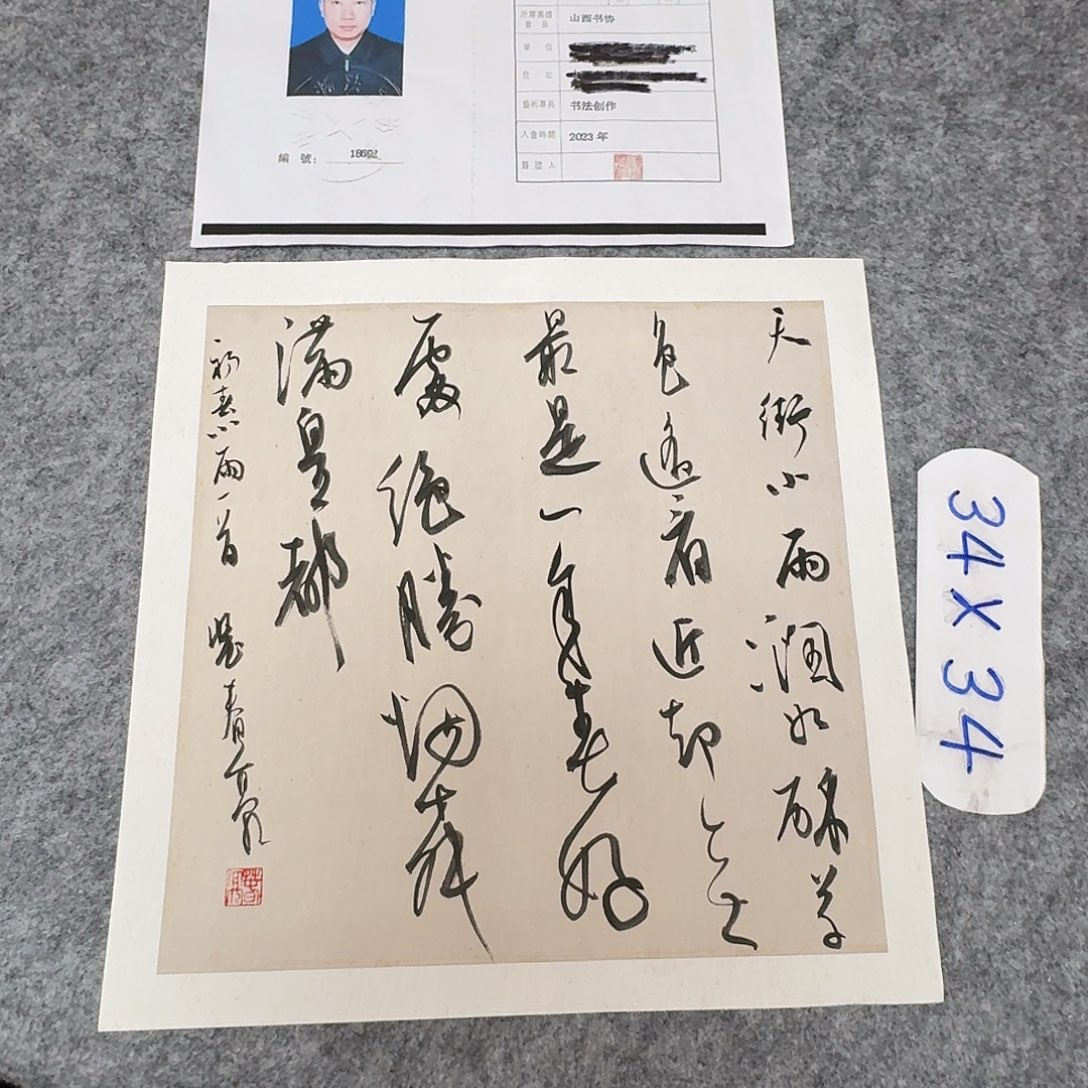 所屬團體會員 山西书协
單位
住址
藝術專長 书法创作
入會時間 2023年
簽證人
編號:
天街小雨润如酥草
色遥看近却无
最是一年春好
處绝勝烟
满皇都
初春小雨一首
34X34